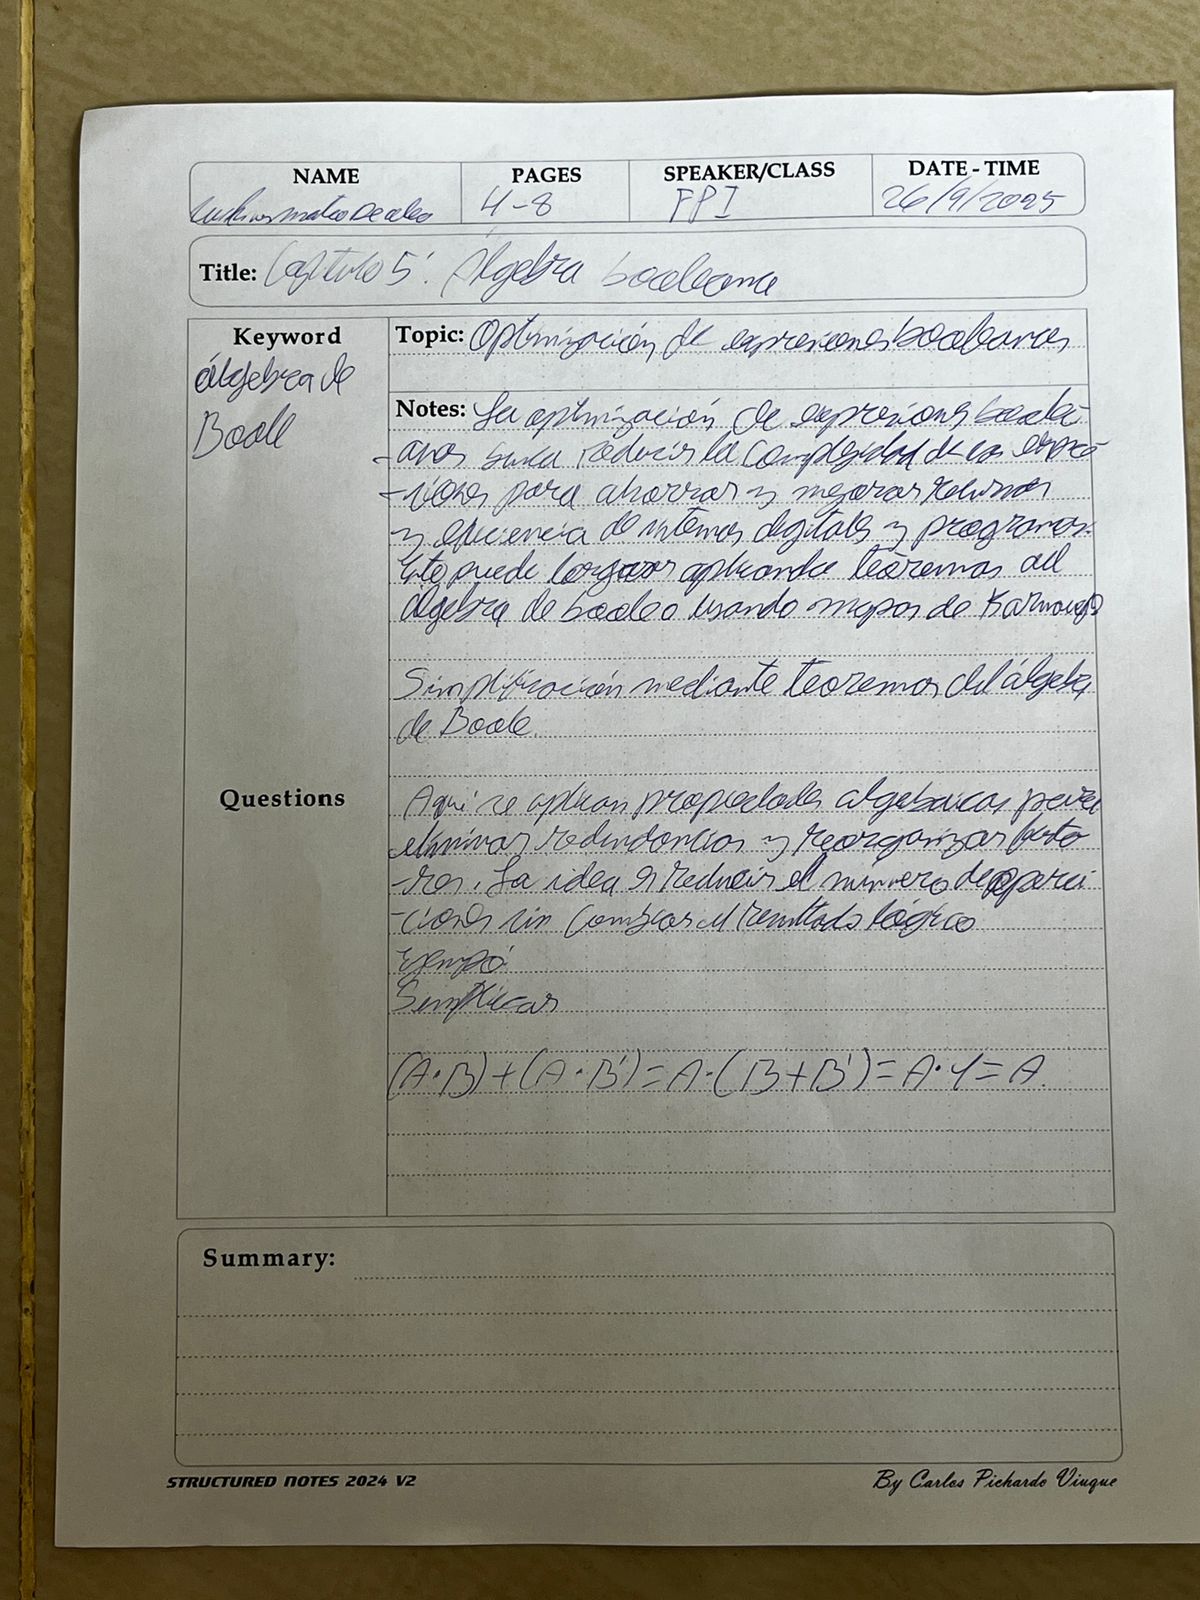 NAME PAGES SPEAKER/CLASS DATE - TIME
4-8 FPI 26/9/2025
Title: Capítulo 5: Álgebra booleana
Keyword
álgebra de
Boole
Topic: Optimización de expresiones booleanas
Notes: La optimización de expresiones boolea-
-anas busca reducir la complejidad de las expre-
-siones para ahorrar y mejorar recursos
y eficiencia de sistemas digitales y programas.
Esto puede aplicando teoremas del
álgebra de boole o usando mapas de Karnaugh
Simplificación mediante teoremas del álgebra
de Boole.
Questions
Aquí se aplican propiedades algebraicas para
eliminar redundancias y reorganizar facto
-res. La idea es reducir el número de opera
-ciones sin cambiar el resultado lógico
Simplificar
(A·B)+(A·B')=A·(B+B')=A·1=A.
Summary:
STRUCTURED NOTES 2024 V2
By Carlos Pichardo Viuque